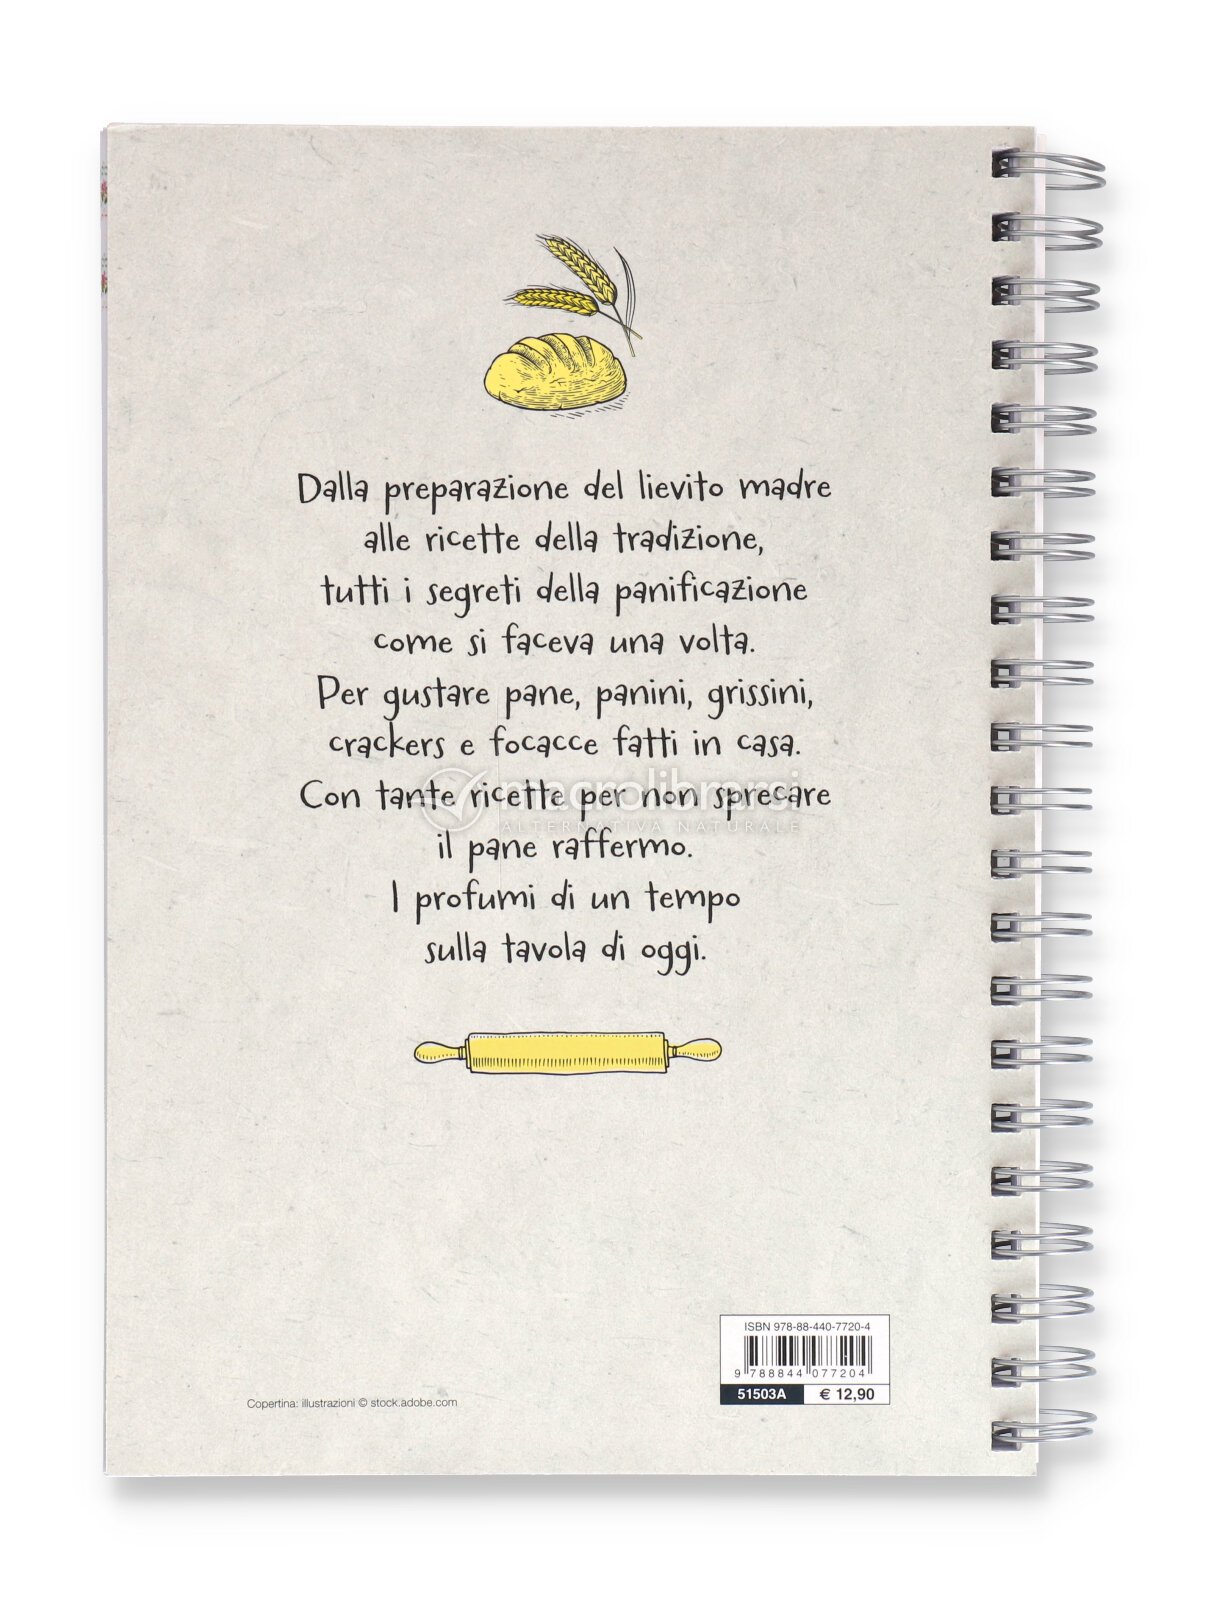 Dalla preparazione del lievito madre
alle ricette della tradizione,
tutti i segreti della panificazione
come si faceva una volta.
Per gustare pane, panini, grissini,
crackers e focacce fatti in casa.
Con tante ricette per non sprecare
il pane raffermo.
I profumi di un tempo
sulla tavola di oggi.
macrolibrarsi
ALTERNATIVA NATURALE
ISBN 978-88-440-7720-4
9 788844 077204
51503A € 12,90
Copertina: illustrazioni © stock.adobe.com